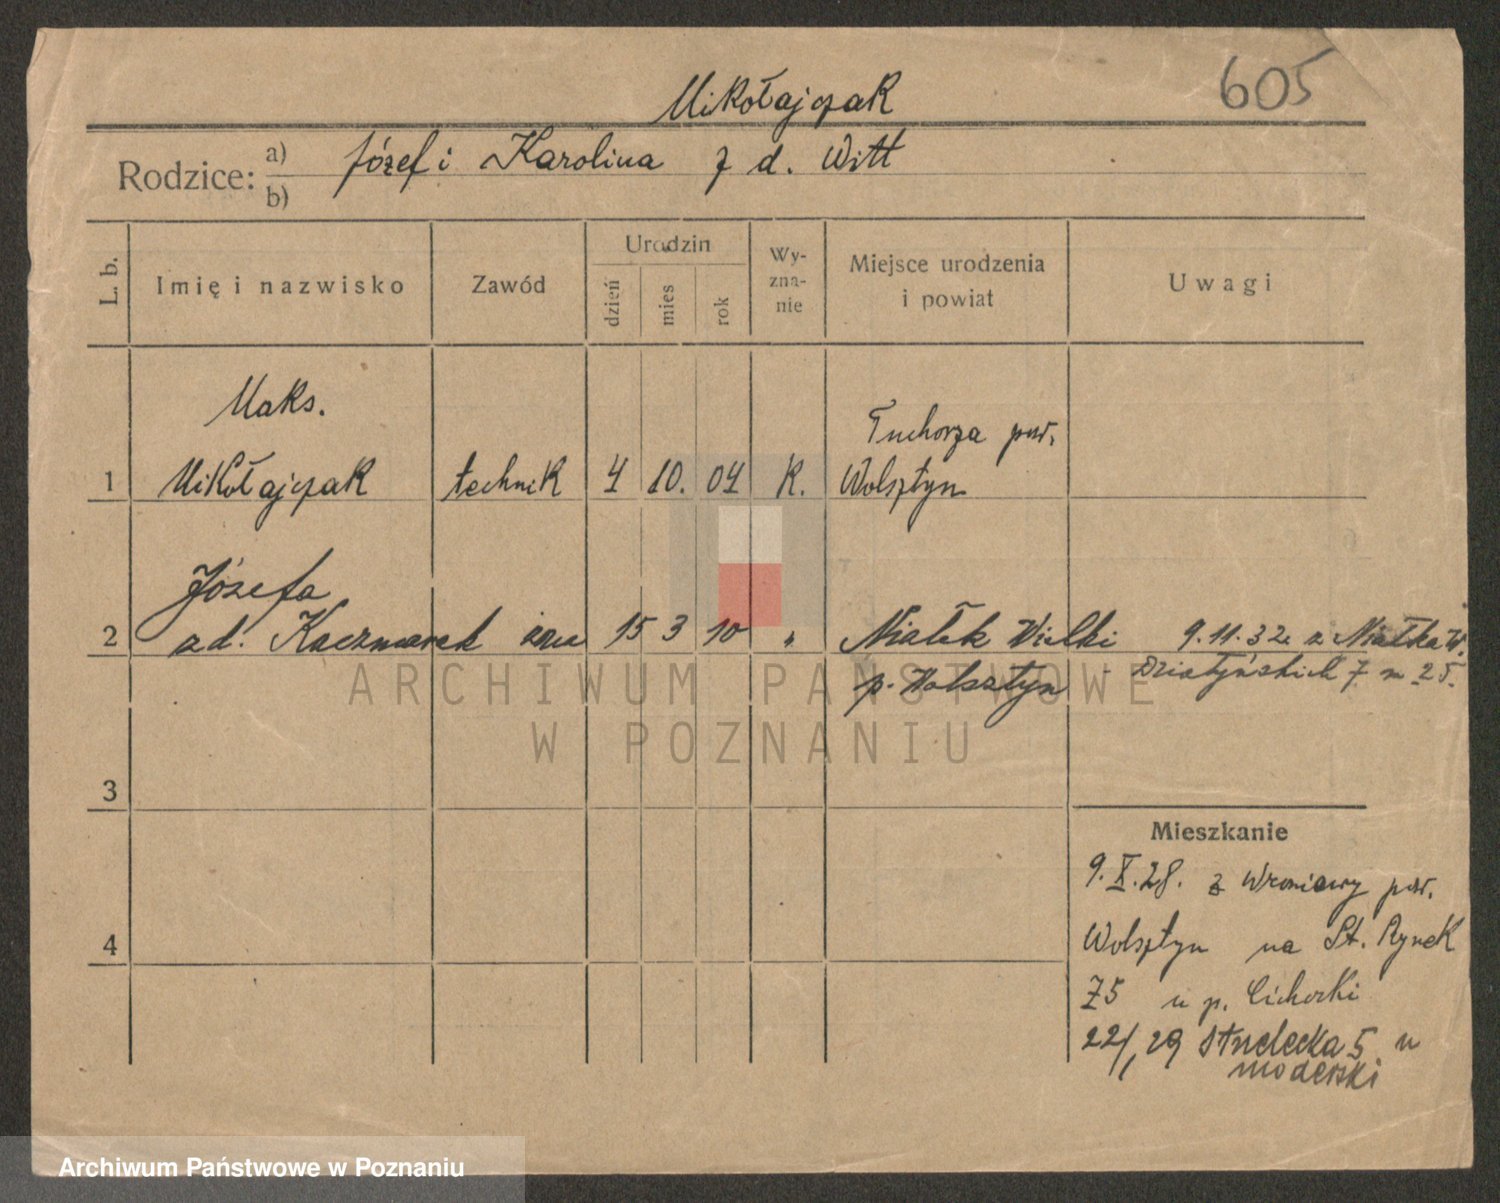 605
Mikołajczak
Rodzice: a) Józef i Karolina z d. Witt
b)
L. b.
Imię i nazwisko
Zawód
Urodzin
dzień
mies
rok
Wy-
zna-
nie
Miejsce urodzenia
i powiat
Uwagi
Maks.
Tuchorza pow.
1 Mikołajczak technik 4 10. 04 K. Wolsztyn
Józefa
2 zd. Kaczmarek żona 15 3 10 „ Niałek Wielki 9.11.32 z Niałka W.
p. Wolsztyn Działyńskich 7 m 25.
3
4
Mieszkanie
9.X.28. z Wroniawy pow.
Wolsztyn na St. Rynek
75 u p. Cichocki
22/1 29 Studecka 5 u
moderski
ARCHIWUM PAŃSTWOWE
W POZNANIU
Archiwum Państwowe w Poznaniu